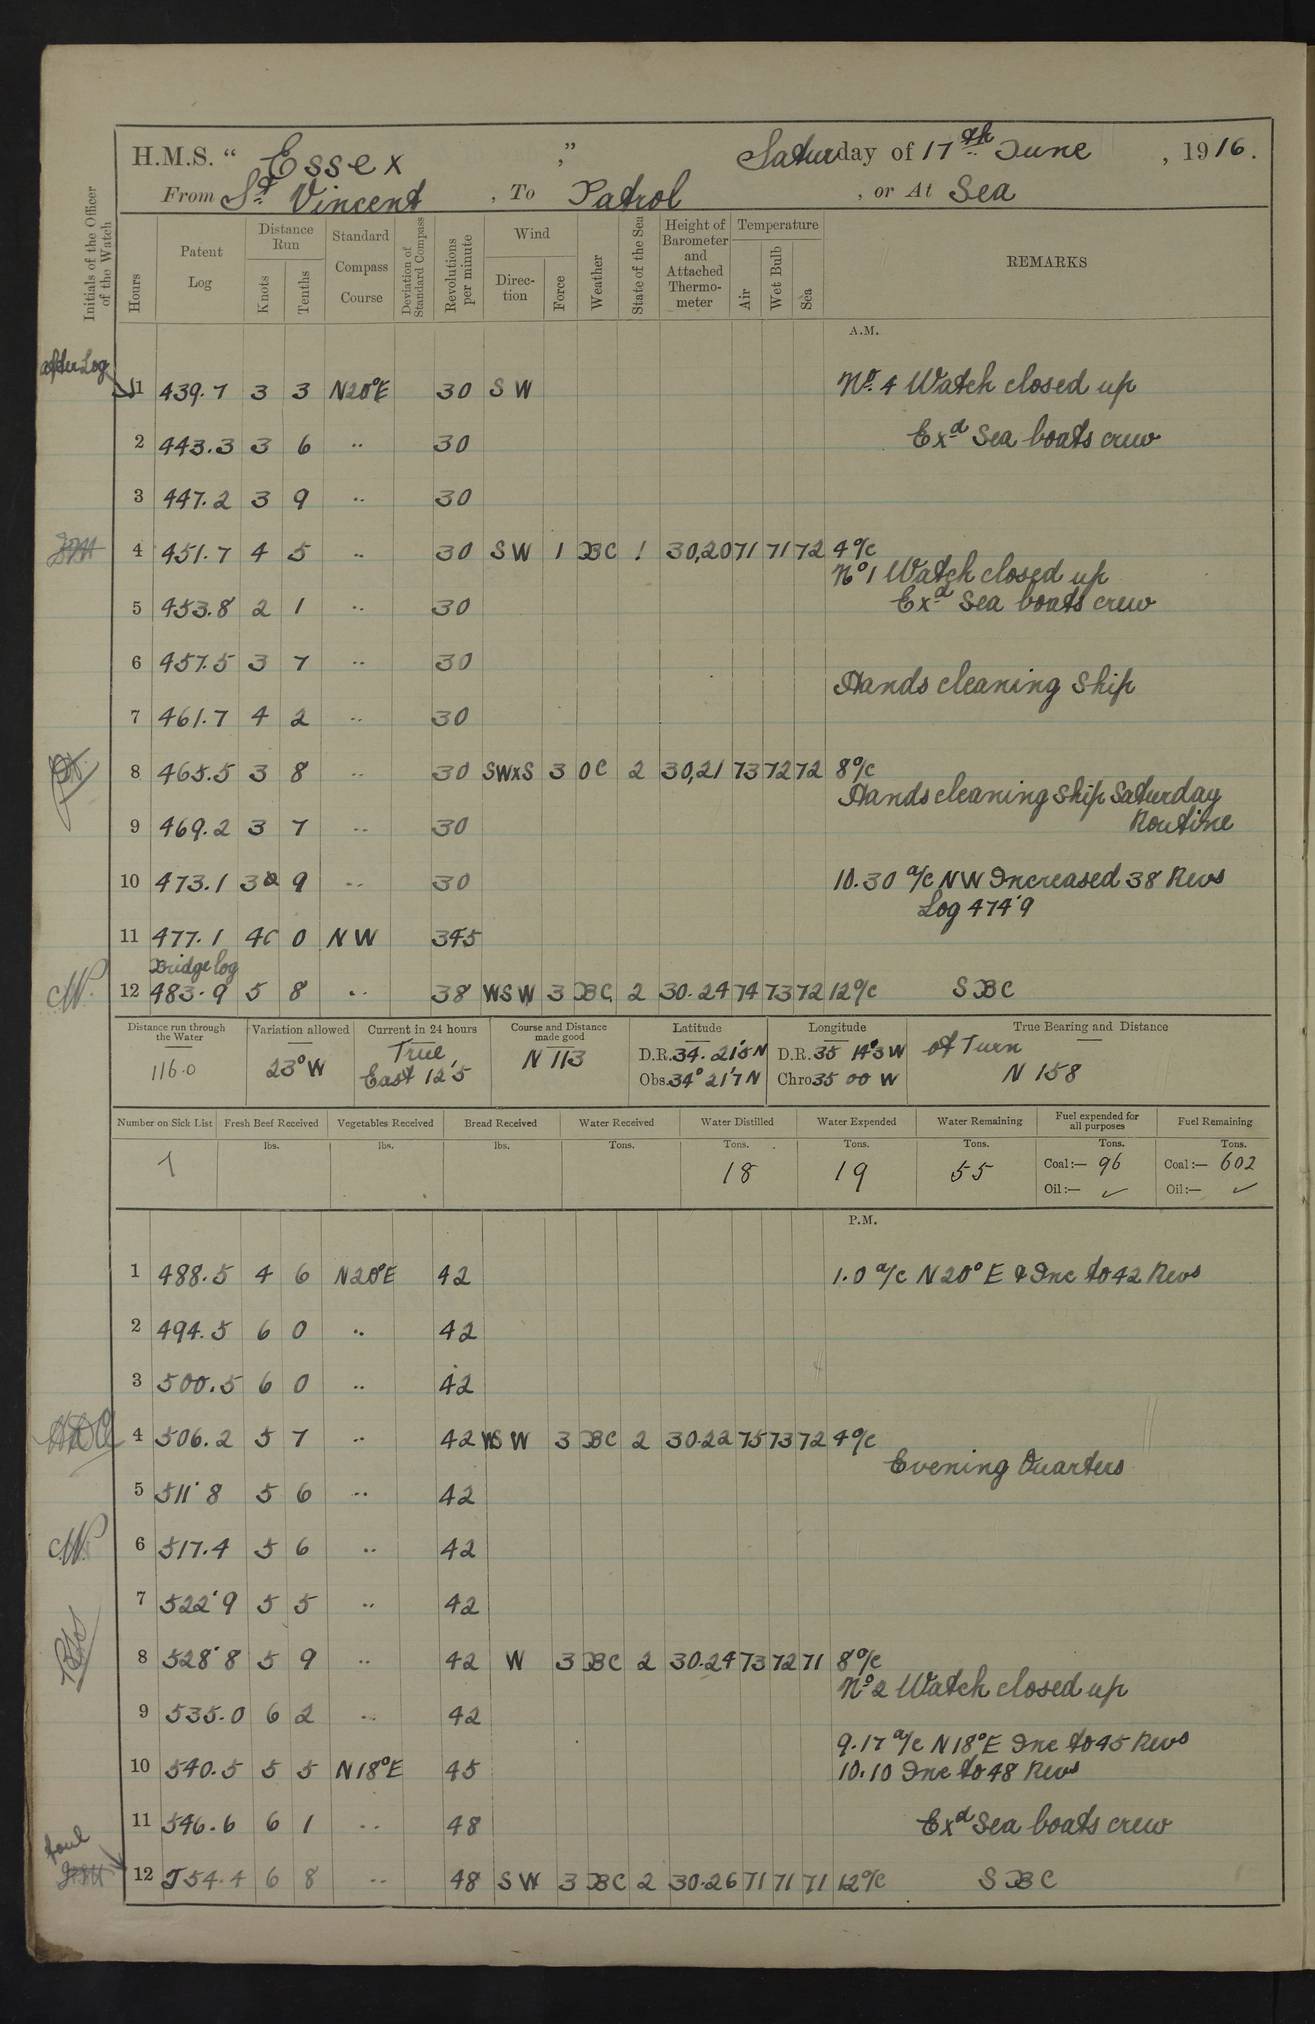 H.M.S. “ Essex ,” Saturday of 17th June , 1916.
From St Vincent , To Patrol , or At Sea
Initials of the Officer of the Watch
Hours
Patent Log
Distance Run
Knots
Tenths
Standard Compass Course
Deviation of Standard Compass
Revolutions per minute
Wind
Direc-tion
Force
Weather
State of the Sea
Height of Barometer and Attached Thermo-meter
Temperature
Air
Wet Bulb
Sea
REMARKS
A.M.
1 439.7 3 3 N20°E 30 SW No 4 Watch closed up
2 443.3 3 6 .. 30 Exd Sea boats crew
3 447.2 3 9 .. 30
4 451.7 4 5 .. 30 SW 1 BC 1 30,20 71 71 72 4 o/c
No 1 Watch closed up
5 453.8 2 1 .. 30 Exd Sea boats crew
6 457.5 3 7 .. 30
Hands cleaning Ship
7 461.7 4 2 .. 30
8 465.5 3 8 .. 30 SWxS 3 OC 2 30,21 73 72 72 8 o/c
Hands cleaning Ship Saturday
9 469.2 3 7 .. 30 Routine
10 473.1 3 9 .. 30 10.30 a/c NW Increased 38 Revs
Log 474.9
11 477.1 4 0 NW 345
Bridge log
12 483.9 5 8 .. 38 WSW 3 BC 2 30.24 74 73 72 12 o/c SBC
Distance run through the Water
116.0
Variation allowed
23° W
Current in 24 hours
True
East 12.5
Course and Distance made good
N 113
Latitude
D.R. 34. 21'5 N
Obs. 34° 21'7 N
Longitude
D.R. 35 14'3 W
Chro 35 00 W
True Bearing and Distance
of Turn
N 158
Number on Sick List Fresh Beef Received Vegetables Received Bread Received Water Received Water Distilled Water Expended Water Remaining Fuel expended for all purposes Fuel Remaining
lbs. lbs. lbs. Tons. Tons. Tons. Tons. Tons. Tons.
7 18 19 55 Coal:— 96 Coal:— 602
Oil:— ✓ Oil:— ✓
P.M.
1 488.5 4 6 N20°E 42 1.0 a/c N 20° E & Inc to 42 Revs
2 494.5 6 0 .. 42
3 500.5 6 0 .. 42
4 506.2 5 7 .. 42 WSW 3 BC 2 30.22 75 73 72 4 o/c
Evening Quarters
5 511.8 5 6 .. 42
6 517.4 5 6 .. 42
7 522.9 5 5 .. 42
8 528.8 5 9 .. 42 W 3 BC 2 30.24 73 72 71 8 o/c
No 2 Watch closed up
9 535.0 6 2 .. 42
9.17 a/c N18°E Inc to 45 Revs
10 540.5 5 5 N18°E 45 10.10 Inc to 48 Revs
11 546.6 6 1 .. 48 Exd Sea boats crew
12 554.4 6 8 .. 48 SW 3 BC 2 30.26 71 71 71 12 o/c SBC